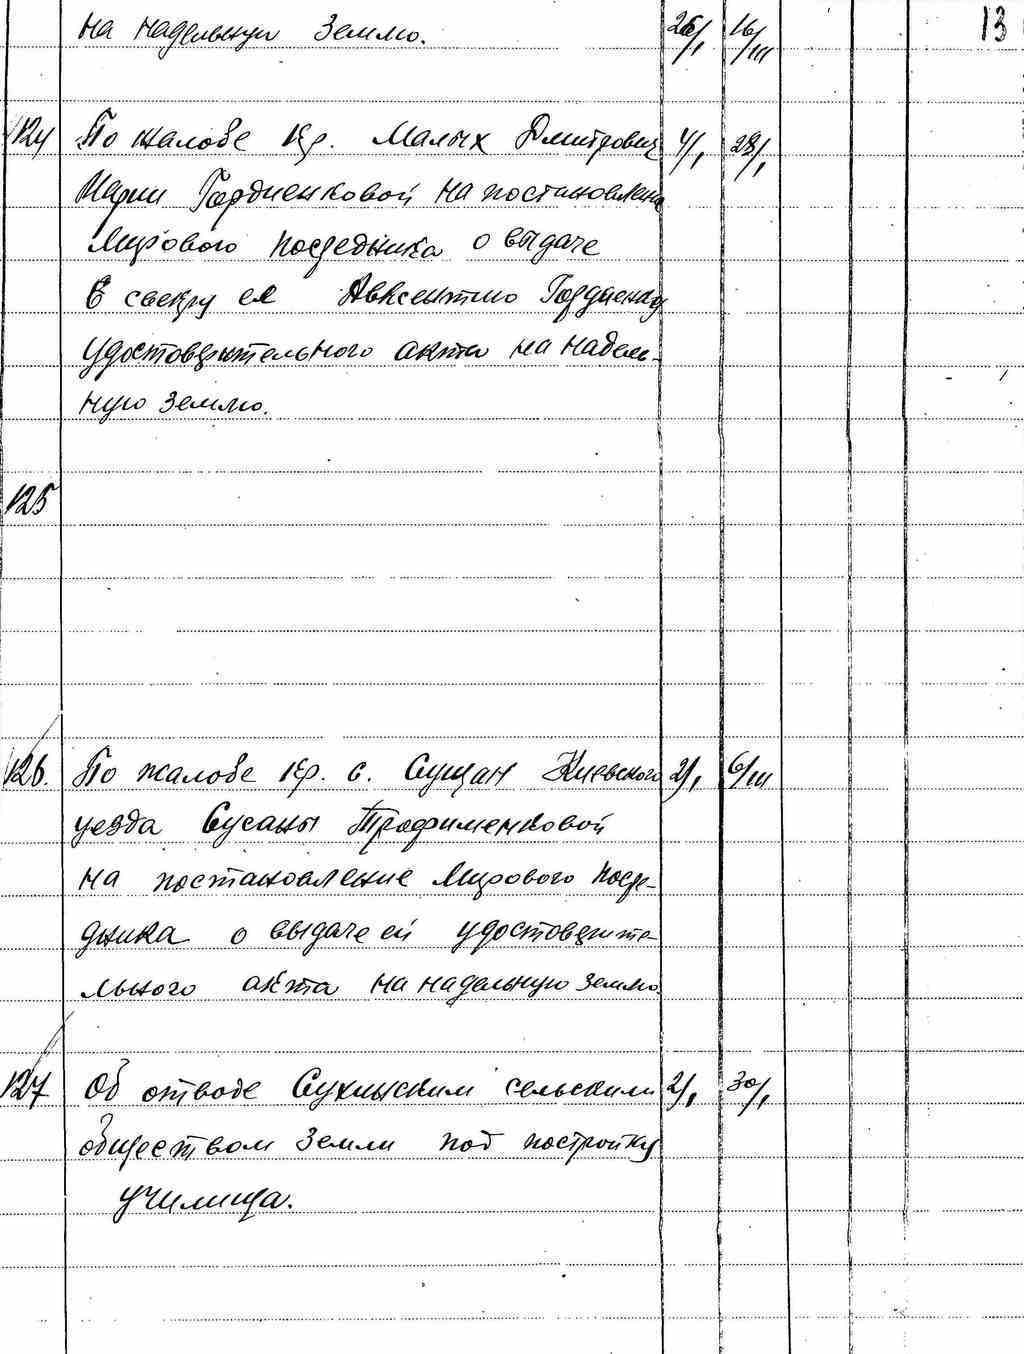 на надельную землю. 26/I 16/III 13
124 По жалобе кр. Малых Дмитрович 4/I 28/I
Марии Гордиенковой на постановление
Мирового посредника о выдаче
свекру ея Авксентию Гордиенко
удостоверительного акта на надель-
ную землю.
125
126. По жалобе кр. с. Сущан Киевского 2/I 6/III
уезда Сусаны Трофименковой
на постановление Мирового посре-
дника о выдаче ей удостоверите-
льного акта на надельную землю.
127 Об отводе Сухинским сельским 2/I 30/I
обществом земли под постройку
училища.